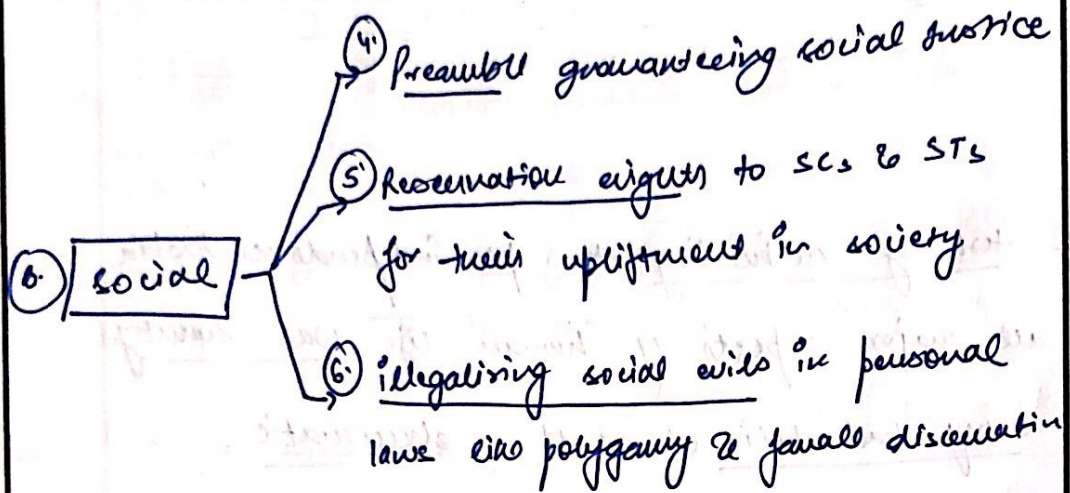 4. Preamble guaranteeing social justice
5. Reservation rights to SCs & STs
for their upliftment in society
B. social
6. illegalising social evils in personal
laws like polygamy & female discrimination